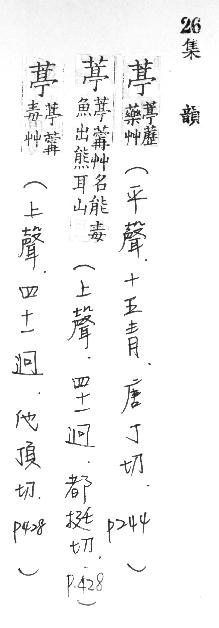 26
集韻
葶葶藶藥艸(平聲.十五青.唐丁切.P244)
葶葶薴艸名能毒魚出熊耳山(上聲.四十一迥.都挺切.P.428)
葶葶薴毒艸(上聲.四十一迥.他頂切.P428)